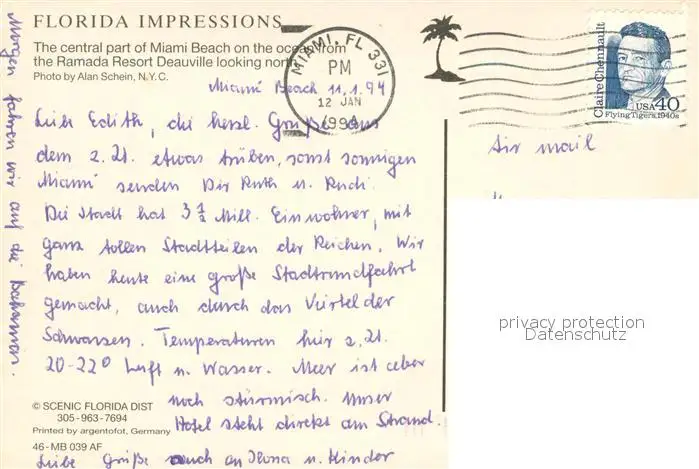 FLORIDA IMPRESSIONS
The central part of Miami Beach on the ocean from
the Ramada Resort Deauville looking north
Photo by Alan Schein, N.Y.C.
MIAMI, FL 331
PM
12 JAN
1994
Claire Chennault
USA 40
Flying Tigers, 1940s
Air mail
Miami Beach 11.1.94
Liebe Edith, die herzl. Grüße aus
dem z. Zt. etwas trüben, sonst sonnigen
Miami senden Dir Ruth u. Rudi.
Die Stadt hat 3 ½ Mill. Einwohner, mit
ganz tollen Stadtteilen der Reichen. Wir
haben heute eine große Stadtrundfahrt
gemacht, auch durch das Viertel der
Schwarzen. Temperaturen hier z. Zt.
20-22° Luft u. Wasser. Meer ist aber
noch stürmisch. Unser
Hotel steht direkt am Strand.
Liebe Grüße auch an Ilona u. Kinder
Morgen fahren wir auf die Bahamas.
© SCENIC FLORIDA DIST
305-963-7694
Printed by argentofot, Germany
46-MB 039 AF
privacy protection
Datenschutz